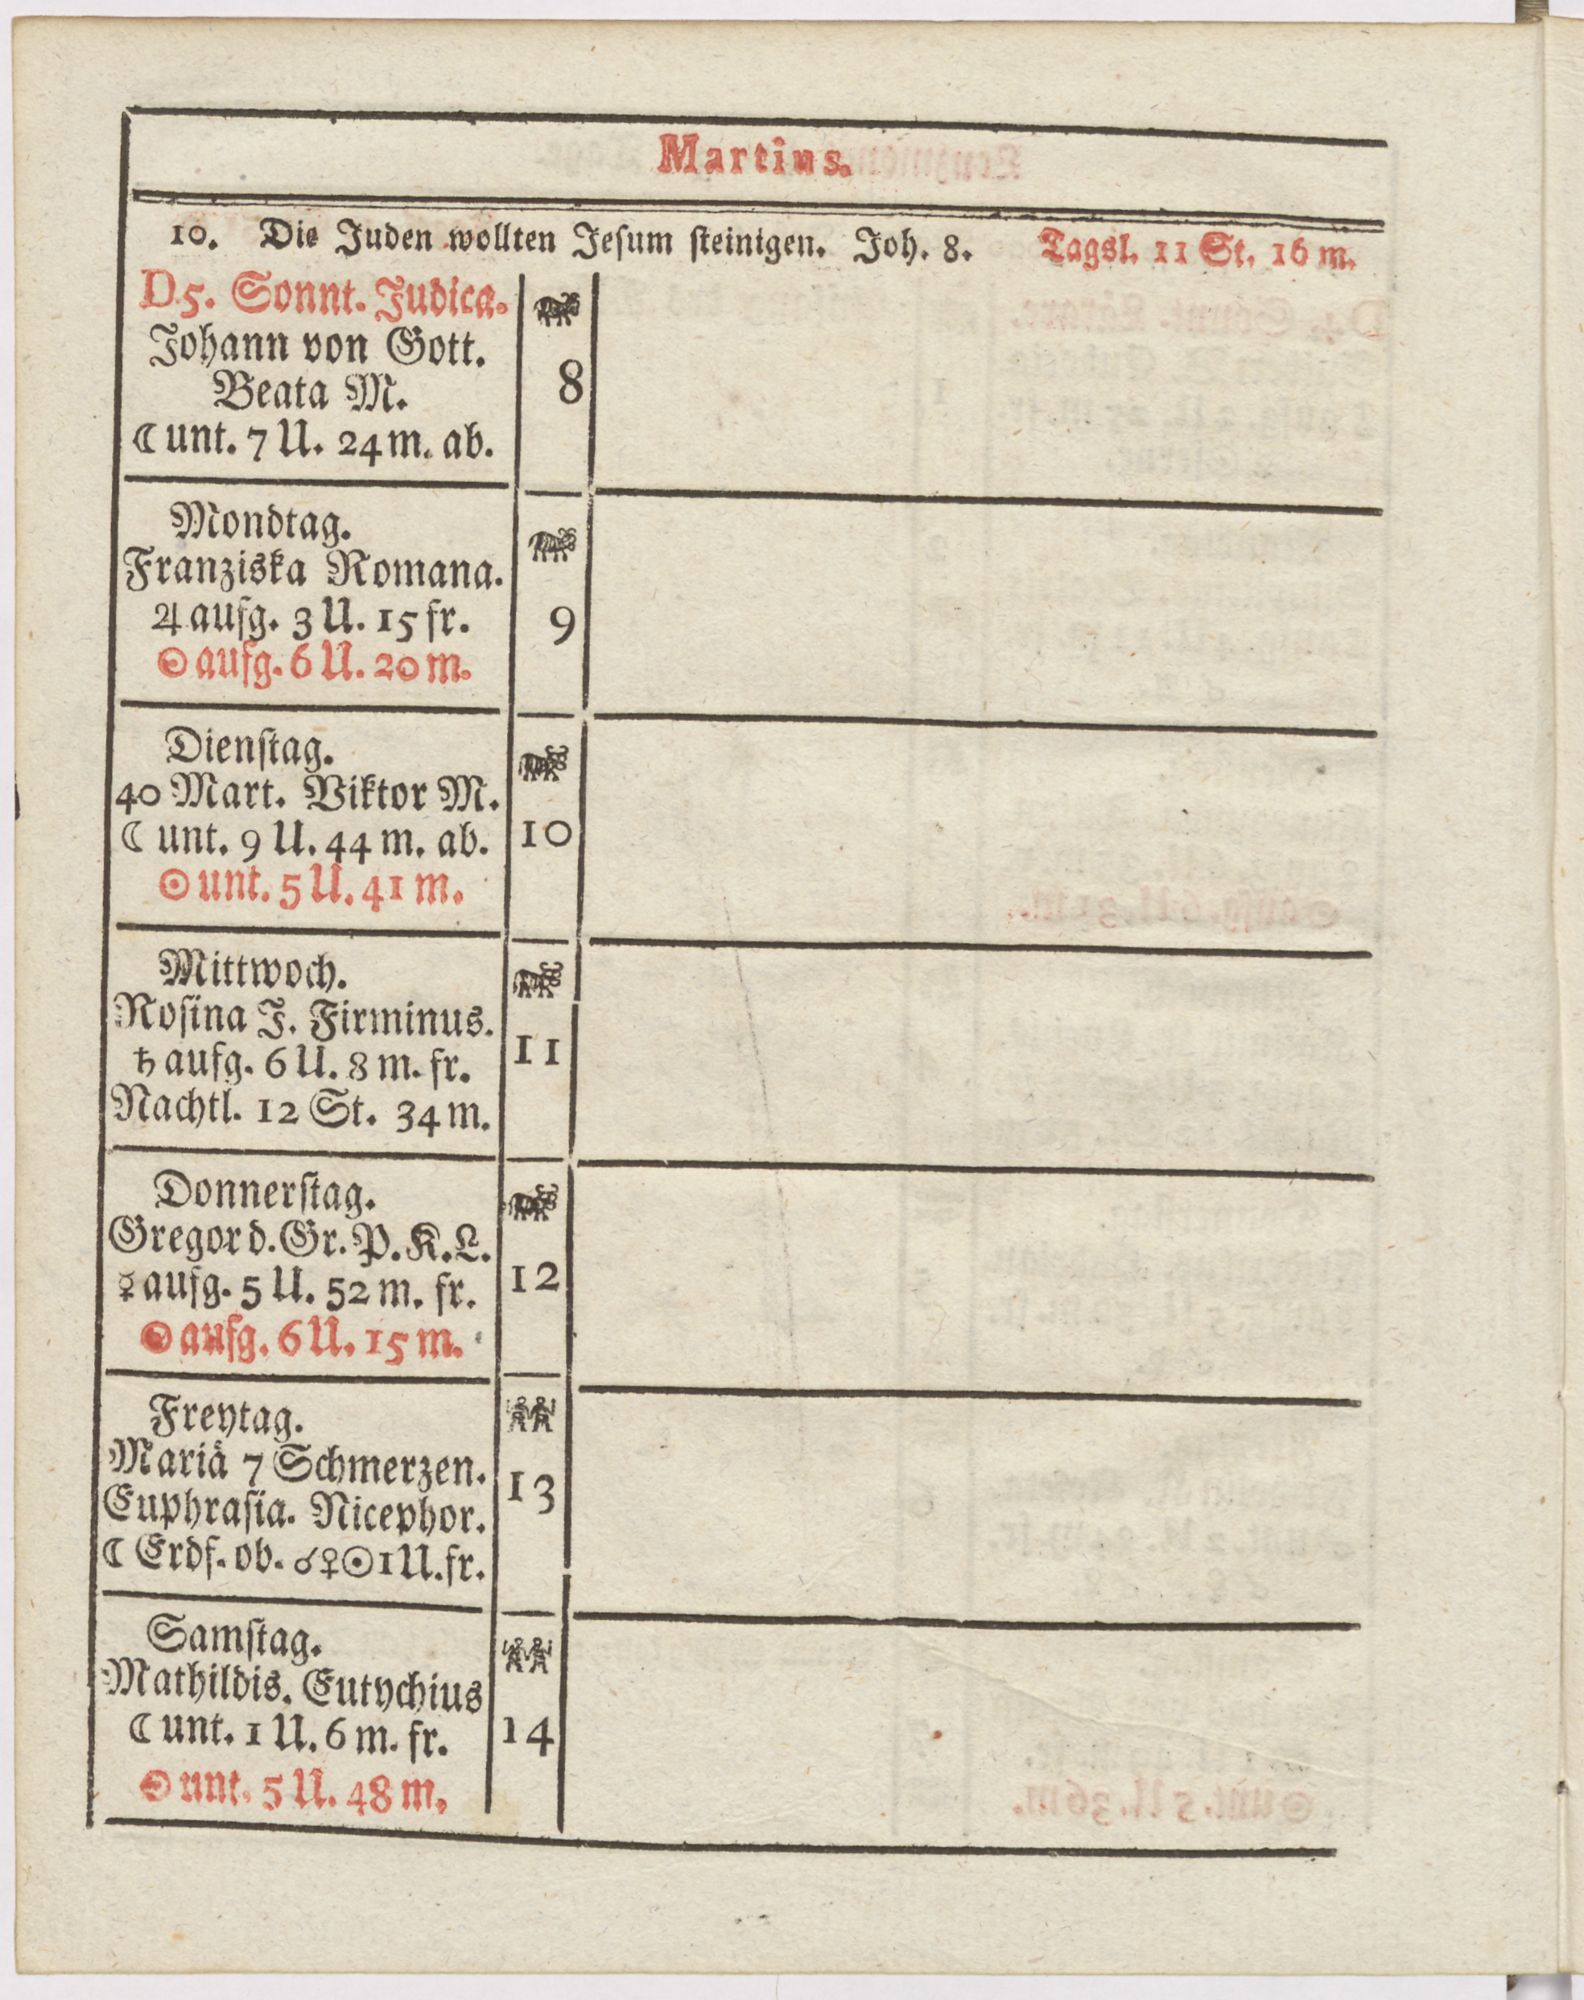 Martius.
10. Die Juden wollten Jesum steinigen. Joh. 8. Tagsl. 11 St. 16 m.
D5. Sonnt. Judica.
Johann von Gott.
Beata M.
☾ unt. 7 U. 24 m. ab.
8
Mondtag.
Franziska Romana.
♃ aufg. 3 U. 15 fr.
☉ aufg. 6 U. 20 m.
9
Dienstag.
40 Mart. Viktor M.
☾ unt. 9 U. 44 m. ab.
☉ unt. 5 U. 41 m.
10
Mittwoch.
Rosina J. Firminus.
♄ aufg. 6 U. 8 m. fr.
Nachtl. 12 St. 34 m.
11
Donnerstag.
Gregor d. Gr. P. K. L.
☿ aufg. 5 U. 52 m. fr.
☉ aufg. 6 U. 15 m.
12
Freytag.
Mariä 7 Schmerzen.
Euphrasia. Nicephor.
☾ Erdf. ob. ☌♀☉ 1 U. fr.
13
Samstag.
Mathildis. Eutychius
☾ unt. 1 U. 6 m. fr.
☉ unt. 5 U. 48 m.
14